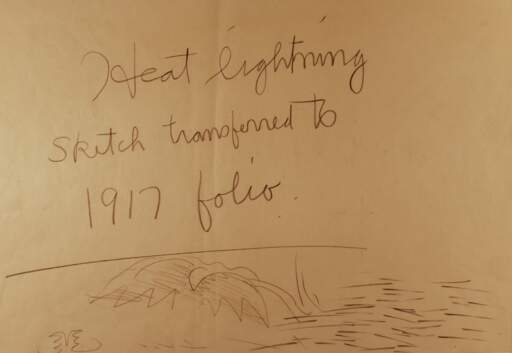 Heat lightning
Sketch transferred to
1917 folio.